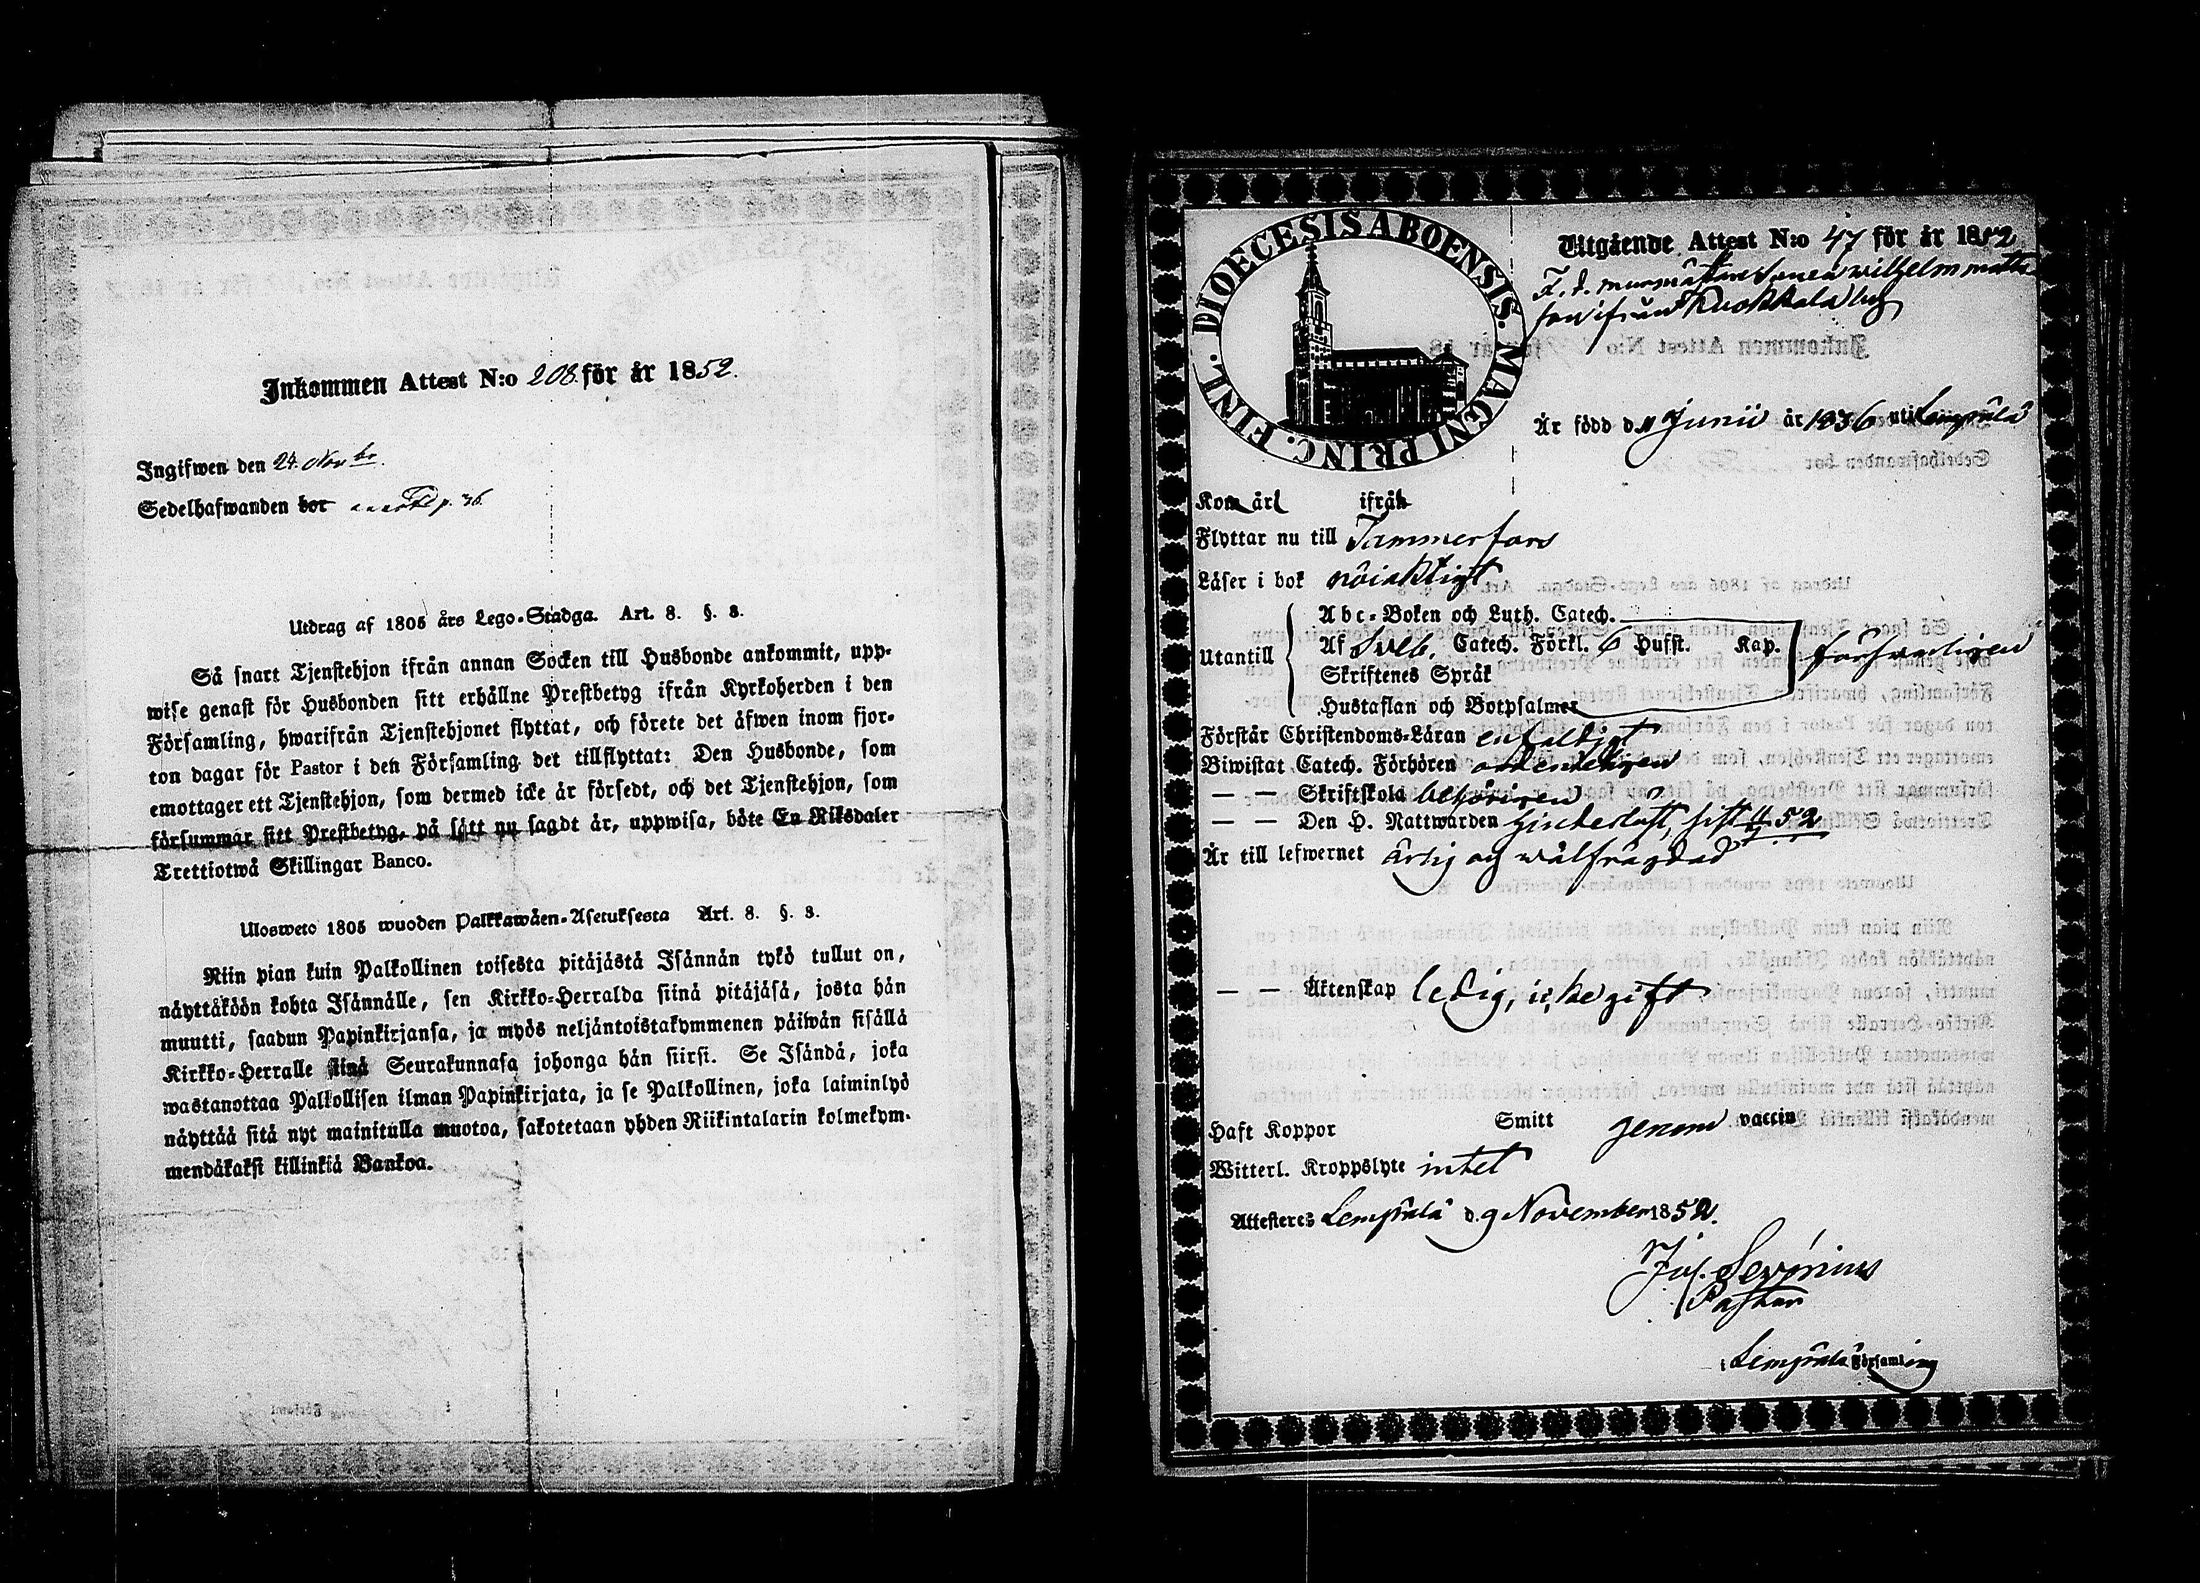 Inkommen Attest N:o 208. för år 1852.
Ingifwen den 24. Novbr.
Sedelhafwanden bor p. 36.
Utdrag af 1805 års Lego-Stadga. Art. 8. §. 3.
Så snart Tjenstehjon ifrån annan Socken till Husbonde ankommit, upp-
wise genast för Husbonden sitt erhållne Prestbetyg ifrån Kyrkoherden i den
Församling, hwarifrån Tjenstehjonet flyttat, och förete det äfwen inom fjor-
ton dagar för Pastor i den Församling det tillflyttat: Den Husbonde, som
emottager ett Tjenstehjon, som dermed icke är försedt, och det Tjenstehjon, som
försummar sitt Prestbetyg, på sätt nu sagdt är, uppwisa, böte En Riksdaler
Trettiotwå Skillingar Banco.
Ulosweto 1805 wuoden Palkkawäen-Asetuksesta Art. 8. §. 3.
Niin pian kuin Palkollinen toisesta pitäjästä Isännän tykö tullut on,
näyttäköön kohta Isännälle, sen Kirkko-Herralda siinä pitäjäsä, josta hän
muutti, saadun Papinkirjansa, ja myös neljäntoistakymmenen päiwän sisällä
Kirkko-Herralle siinä Seurakunnasa johonga hän siirsi. Se Isändä, joka
wastanottaa Palkollisen ilman Papinkirjata, ja se Palkollinen, joka laiminlyö
näyttää sitä nyt mainitulla muotoa, sakotetaan yhden Riikintalarin kolmekym-
mendäkaksi killinkiä Bankoa.
DIOECESIS ABOENSIS. MAGNI PRINC. FINL.
Utgående Attest N:o 47 för år 1852
F. d. sonen Wilhelm Matts
son ifrån Kuokkala by
Är född d. 11 Junii år 1836 uti Lempälä
Kom år ifrån
Flyttar nu till Tammerfors
Läser i bok nöiaktigt
Utantill
Abc-Boken och Luth. Catech.
Af Sveb. Catech. Förkl. 6 Hufst. Kap.
Skriftenes Språk
Hustaflan och Botpsalmer
försvarligen
Förstår Christendoms-Läran enfaldigt
Biwistat Catech. Förhören ordentligen
— — Skriftskola behörigen
— — Den H. Nattwarden sist 52
Är till lefwernet ärlig och wälfrägdad
— — Äktenskap ledig, icke gift
Haft Koppor Smitt genom vaccin
Witterl. Kroppslyte intet
Attesteres Lempälä d. 9 November 1852.
Jos. Serenius
Pastor
i Lempälä Församling